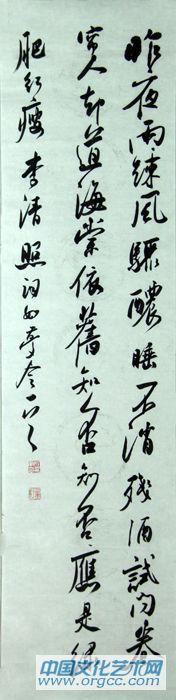 昨夜雨疎风骤醲睡不消残酒试问卷
帘人却道海棠依舊知否知否應是绿
肥红瘦 李清照词如夢令
中国文化艺术网
www.orgcc.com